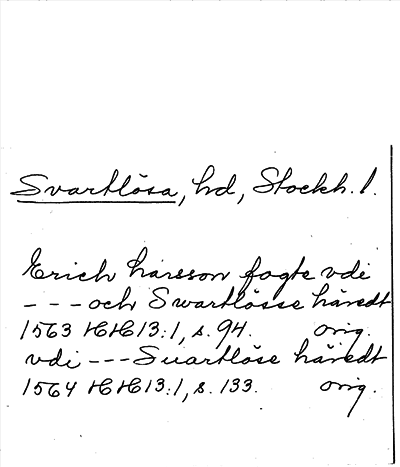 Svartlösa, hd, Stockh. l.
Erich Larsson fogte vdi
- - - och Swartlösse häredt
1563 HH 13:1, s. 94. orig.
vdi - - - Suartlöse häredt
1564 HH 13:1, s. 133. orig.